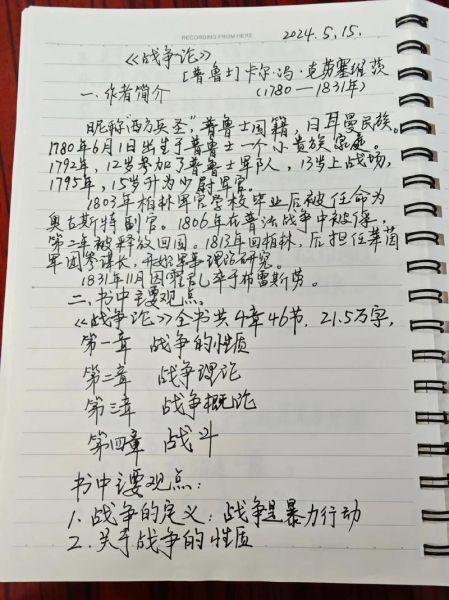 RECORDING FROM HERE
2024.5.15.
《战争论》
[普鲁士]卡尔·冯·克劳塞维茨
一、作者简介 (1780—1831年)
昵称“西方兵圣”，普鲁士国籍，日耳曼民族。
1780年6月1日出生于普鲁士一个小贵族家庭。
1792年，12岁参加了普鲁士军队，13岁上战场，
1795年，15岁升为少尉军官。
1803年柏林军官学校毕业后被任命为
奥古斯特副官。1806年在普法战争中被俘，
第二年被释放回国。1813年回柏林，后担任莱茵
军团参谋长，开始军事理论研究。
1831年11月因霍乱卒于布雷斯劳。
二、书中主要观点
《战争论》全书共4章46节，21.5万字，
第一章 战争的性质
第二章 战争理论
第三章 战争概论
第四章 战斗
书中主要观点：
1、战争的定义：战争是暴力行动
2、关于战争的性质